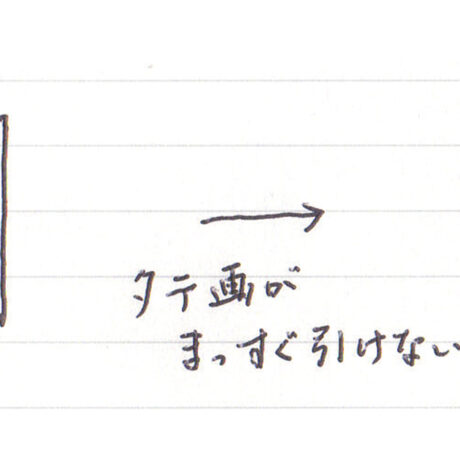 タテ画が
まっすぐ引けない